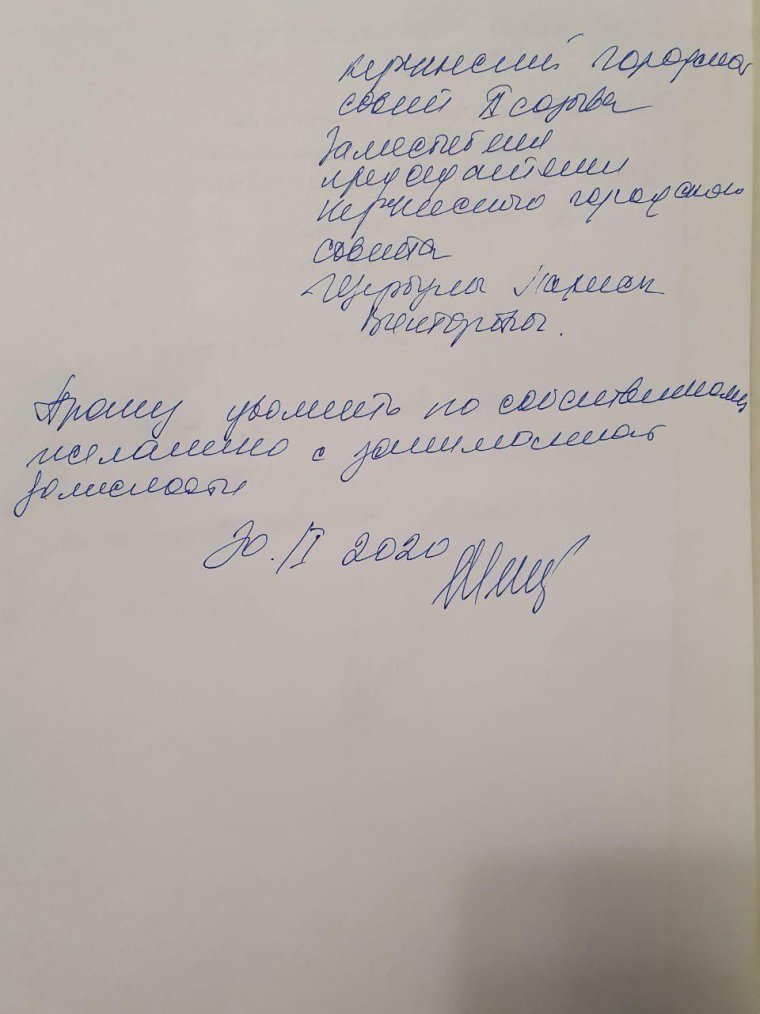 Керченский городской
совет II созыва
Заместителя
председателя
Керченского городского
совета
Щербулы Ларисы
Викторовны.
Прошу уволить по собственному
желанию с занимаемой
должности
30. II 2020